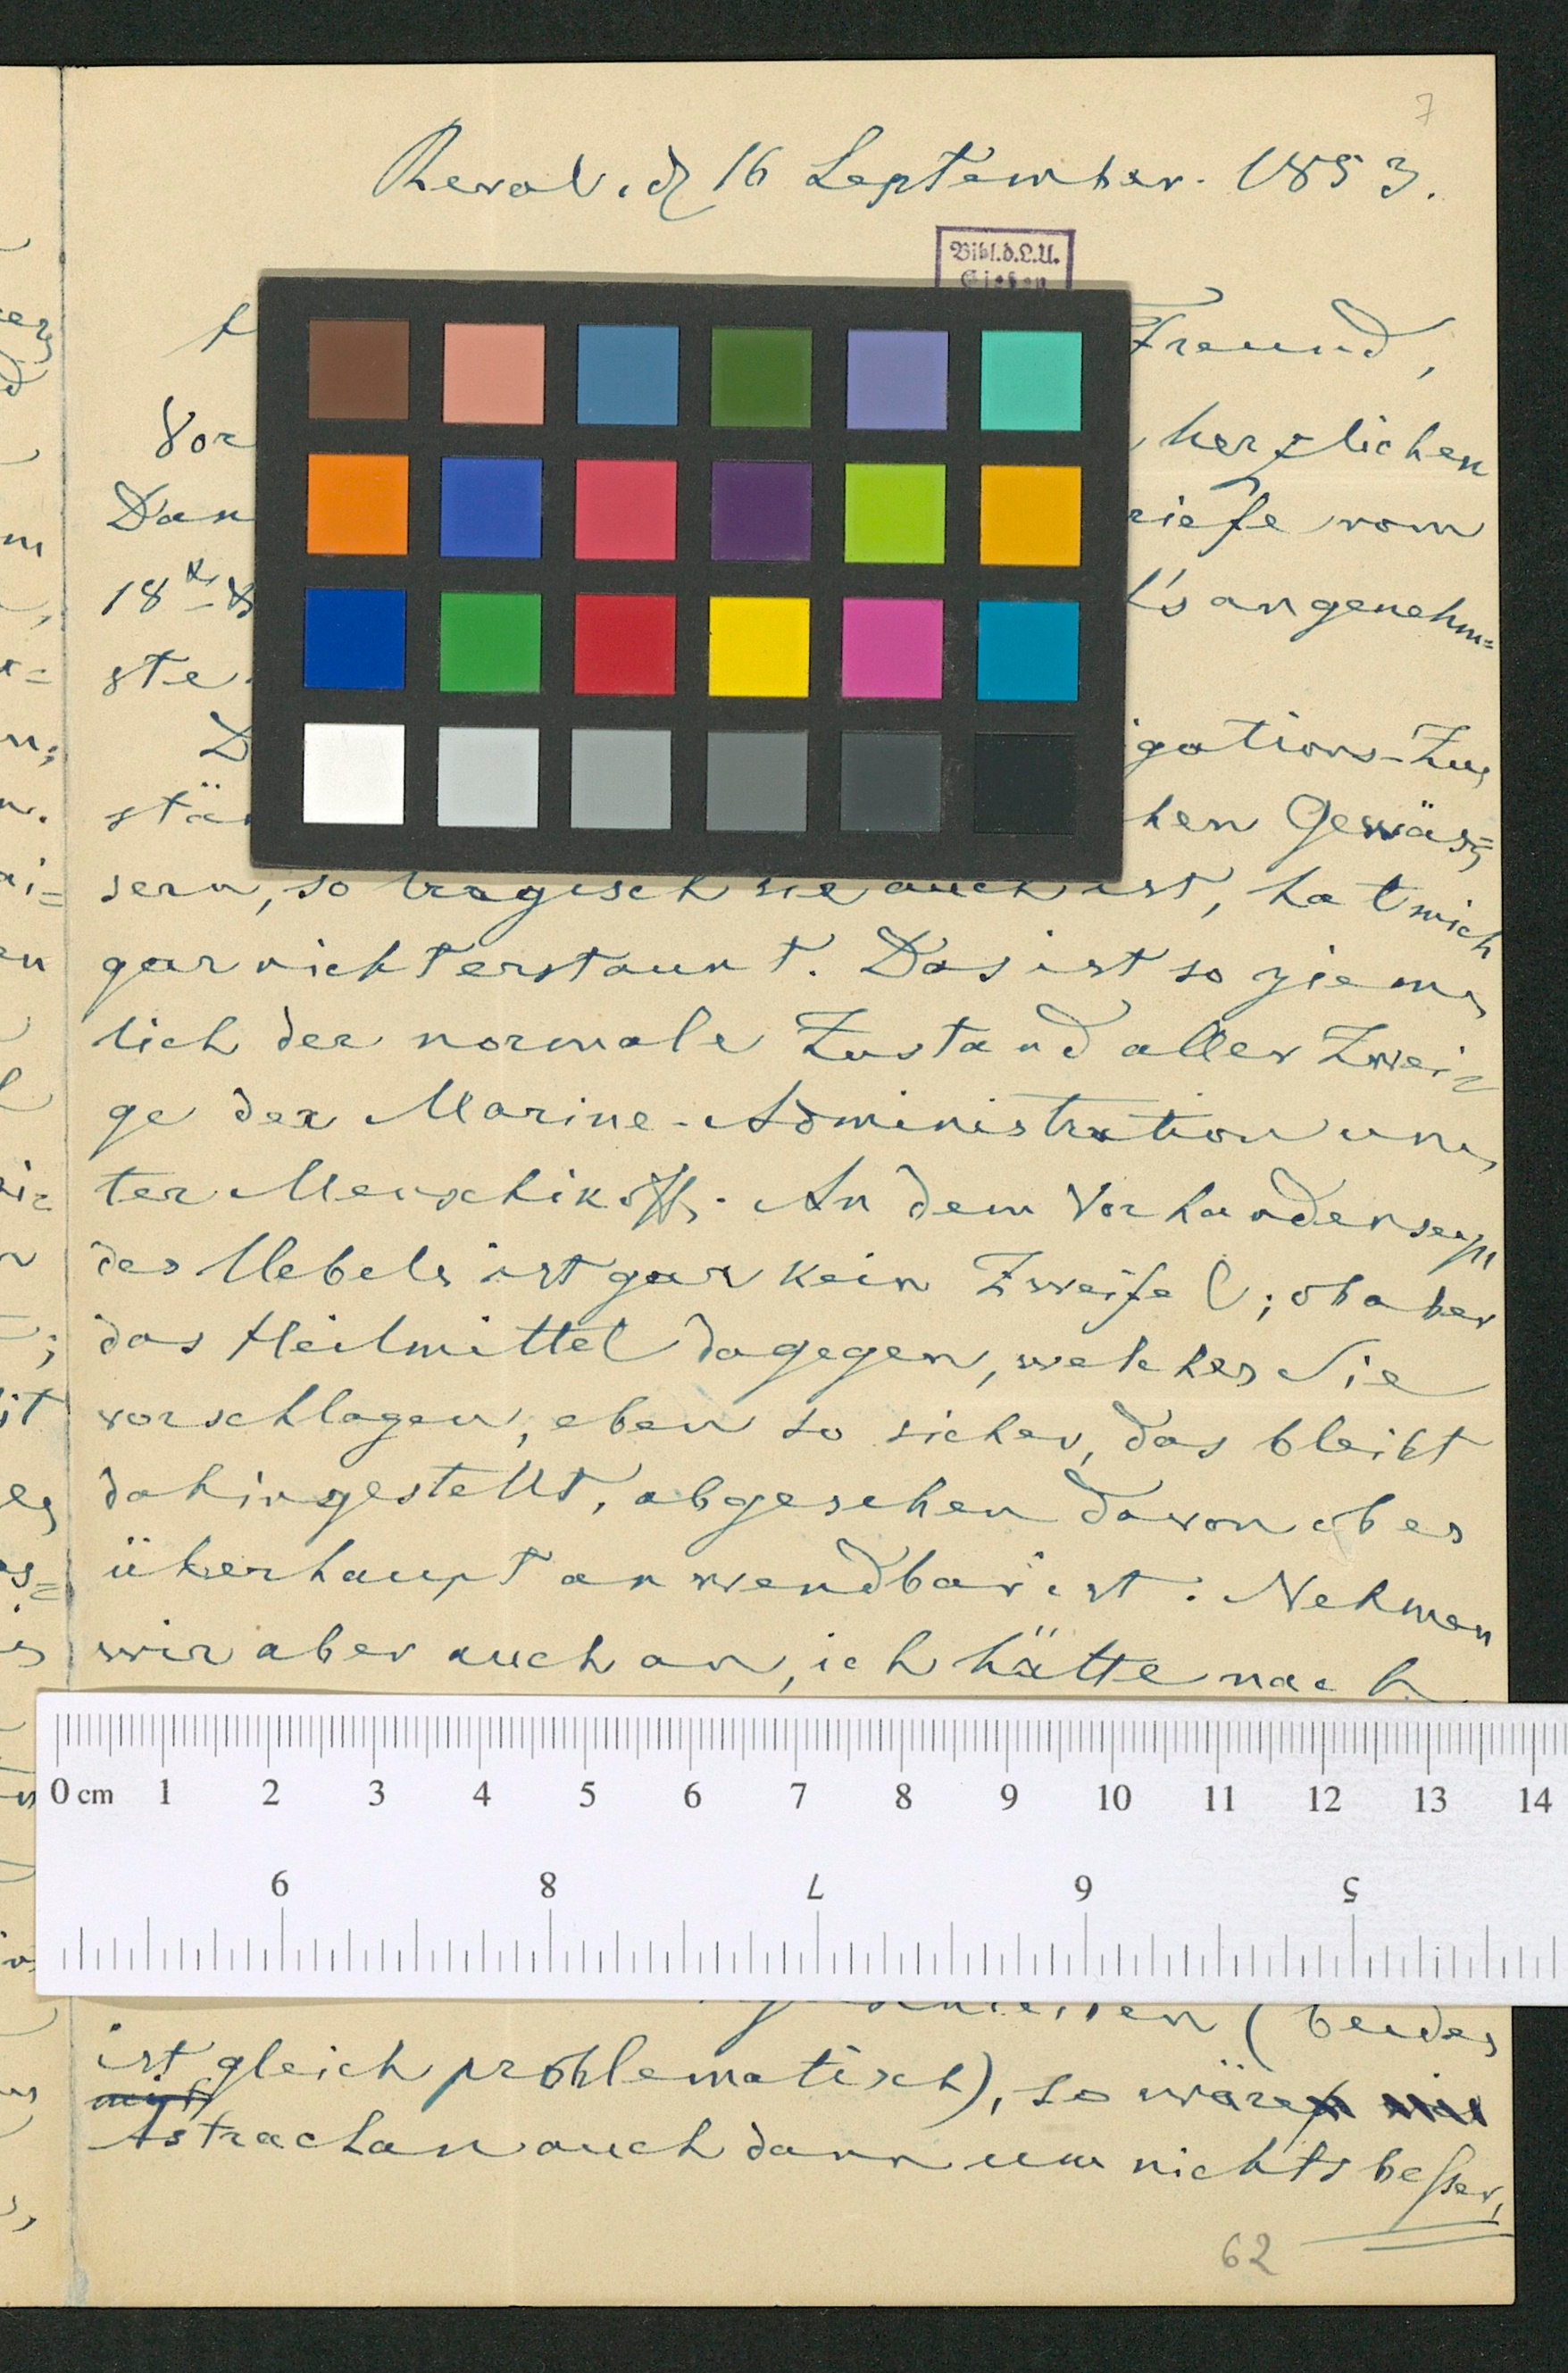 7
Reval. d. 16 September. 1853.
Bibl.d.L.U.
Gießen
Freund,
Vor herzlichen
Dan riefe vom
18 's angenehm=
ste.
D gations-Zu,
stän hen Gewäs=
sern, so tragisch sie auch ist, hat mich
gar nicht erstaunt. Das ist so ziem,
lich der normale Zustand aller Zwei,
ge der Marine-Administration un,
ter Menschikoff. An dem Vorhandenseyn
des Uebels ist gar kein Zweifel; ob aber
das Heilmittel dagegen, welches Sie
vorschlagen, eben so sicher, das bleibt
dahingestellt, abgesehen davon ob es
überhaupt anwendbar ist. Nehmen
wir aber auch an, ich hätte nach
0 cm 1 2 3 4 5 6 7 8 9 10 11 12 13 14
9 8 7 6 5
(beides
ist gleich problematisch), so wäre
Astrachan auch dann um nichts besser,
62